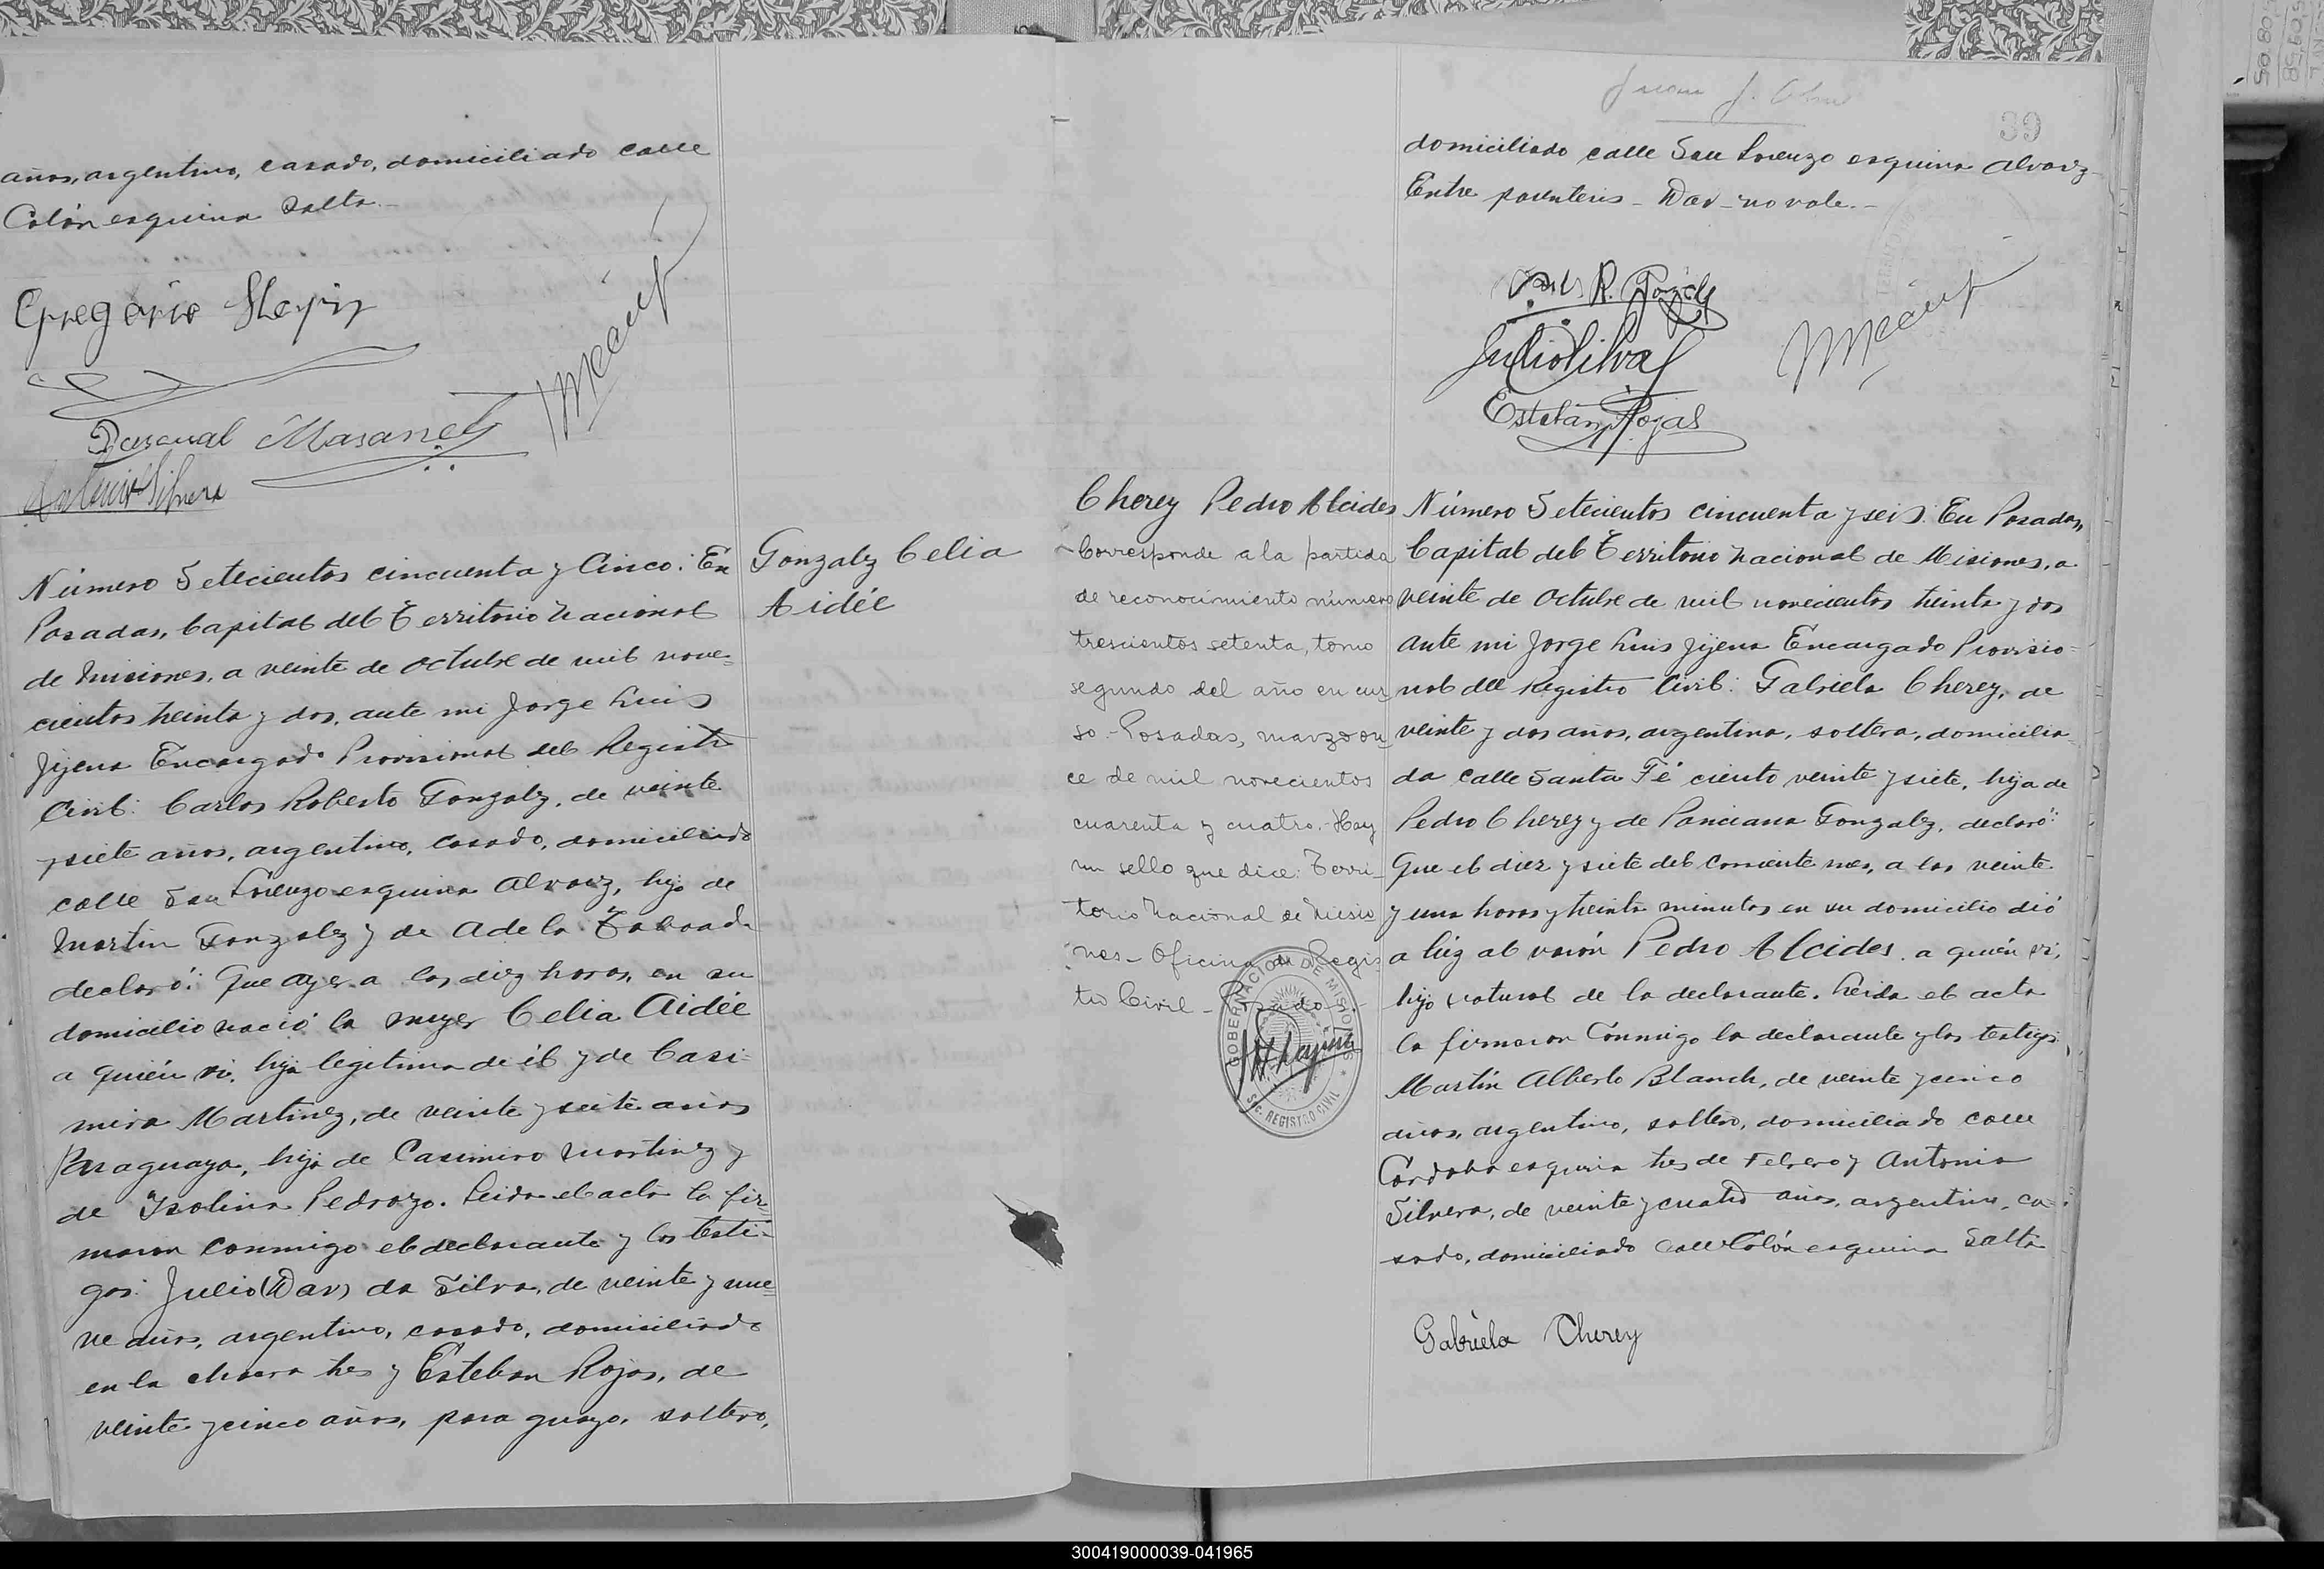 años, argentino, casado, domiciliado calle
Colón esquina Salta.-
Gregorio
Pascual Masanés
Antonio Silvera
Número Setecientos cincuenta y Cinco: En
Posadas, Capital del Territorio Nacional
de Misiones, a veinte de Octubre de mil nove=
cientos treinta y dos, ante mi Jorge Luis
Jijena Encargado Provisional del Registro
Civil: Carlos Roberto Gonzalez, de veinte
y siete años, argentino, casado, domiciliado
calle San Lorenzo esquina Alvarez, hijo de
Martin Gonzalez y de Adela Taboada
declaró: Que ayer a las diez horas, en su
domicilio nació la mujer Celia Aidée
a quién vi, hija legitima de él y de Casi-
mira Martinez, de veinte y siete años
Paraguaya, hija de Casimiro Martinez y
de Isolina Pedrozo. Leida el acta la fir=
maron conmigo el declarante y los testi-
gos: Julio (Dav) da Silva, de veinte y nue=
ve años, argentino, casado, domiciliado
en la chacra tres y Esteban Rojas, de
veinte y cinco años, paraguayo, soltero,
Gonzalez Celia
Aidée
39
domiciliado calle San Lorenzo esquina Alvarez
Entre parentesis - Dav - no vale.-
R. Gonzalez
Julio Silva
Esteban Rojas
Cherey Pedro Alcides
Corresponde a la partida
de reconocimiento número
trescientos setenta, tomo
segundo del año en cur
so.- Posadas, marzo on
ce de mil novecientos
cuarenta y cuatro.- Hay
un sello que dice: Terri-
torio Nacional de Misio
nes - Oficina de Regis
tro Civil -
GOBERNACION DE MISIONES
REGISTRO CIVIL
Número Setecientos cincuenta y seis: En Posadas,
Capital del Territorio Nacional de Misiones, a
veinte de Octubre de mil novecientos treinta y dos
ante mi Jorge Luis Jijena Encargado Provisio-
nal del Registro Civil: Gabriela Cherey, de
veinte y dos años, argentina, soltera, domicilia-
da calle Santa Fé ciento veinte y siete, hija de
Pedro Cherey y de Ponciana Gonzalez, declaró:
Que el diez y siete del corriente mes, a las veinte
y una horas y treinta minutos en su domicilio dió
a luz al varón Pedro Alcides. a quién vi,
hijo natural de la declarante. Leida el acta
la firmaron conmigo la declarante y los testigos:
Martín Alberto Blanch, de veinte y cinco
años, argentino, soltero, domiciliado calle
Córdoba esquina tres de Febrero y Antonio
Silvera, de veinte y cuatro años, argentino, ca-
sado, domiciliado calle Colón esquina Salta
Gabriela Cherey
300419000039-041965